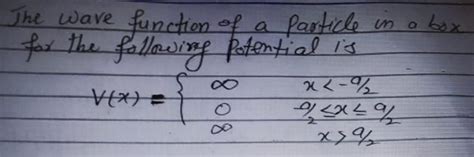 The wave function of a Particle in a box
for the following Potential is
∞ x < -a/2
V(x) = { 0 -a/2 ≤ x ≤ a/2
∞ x > a/2